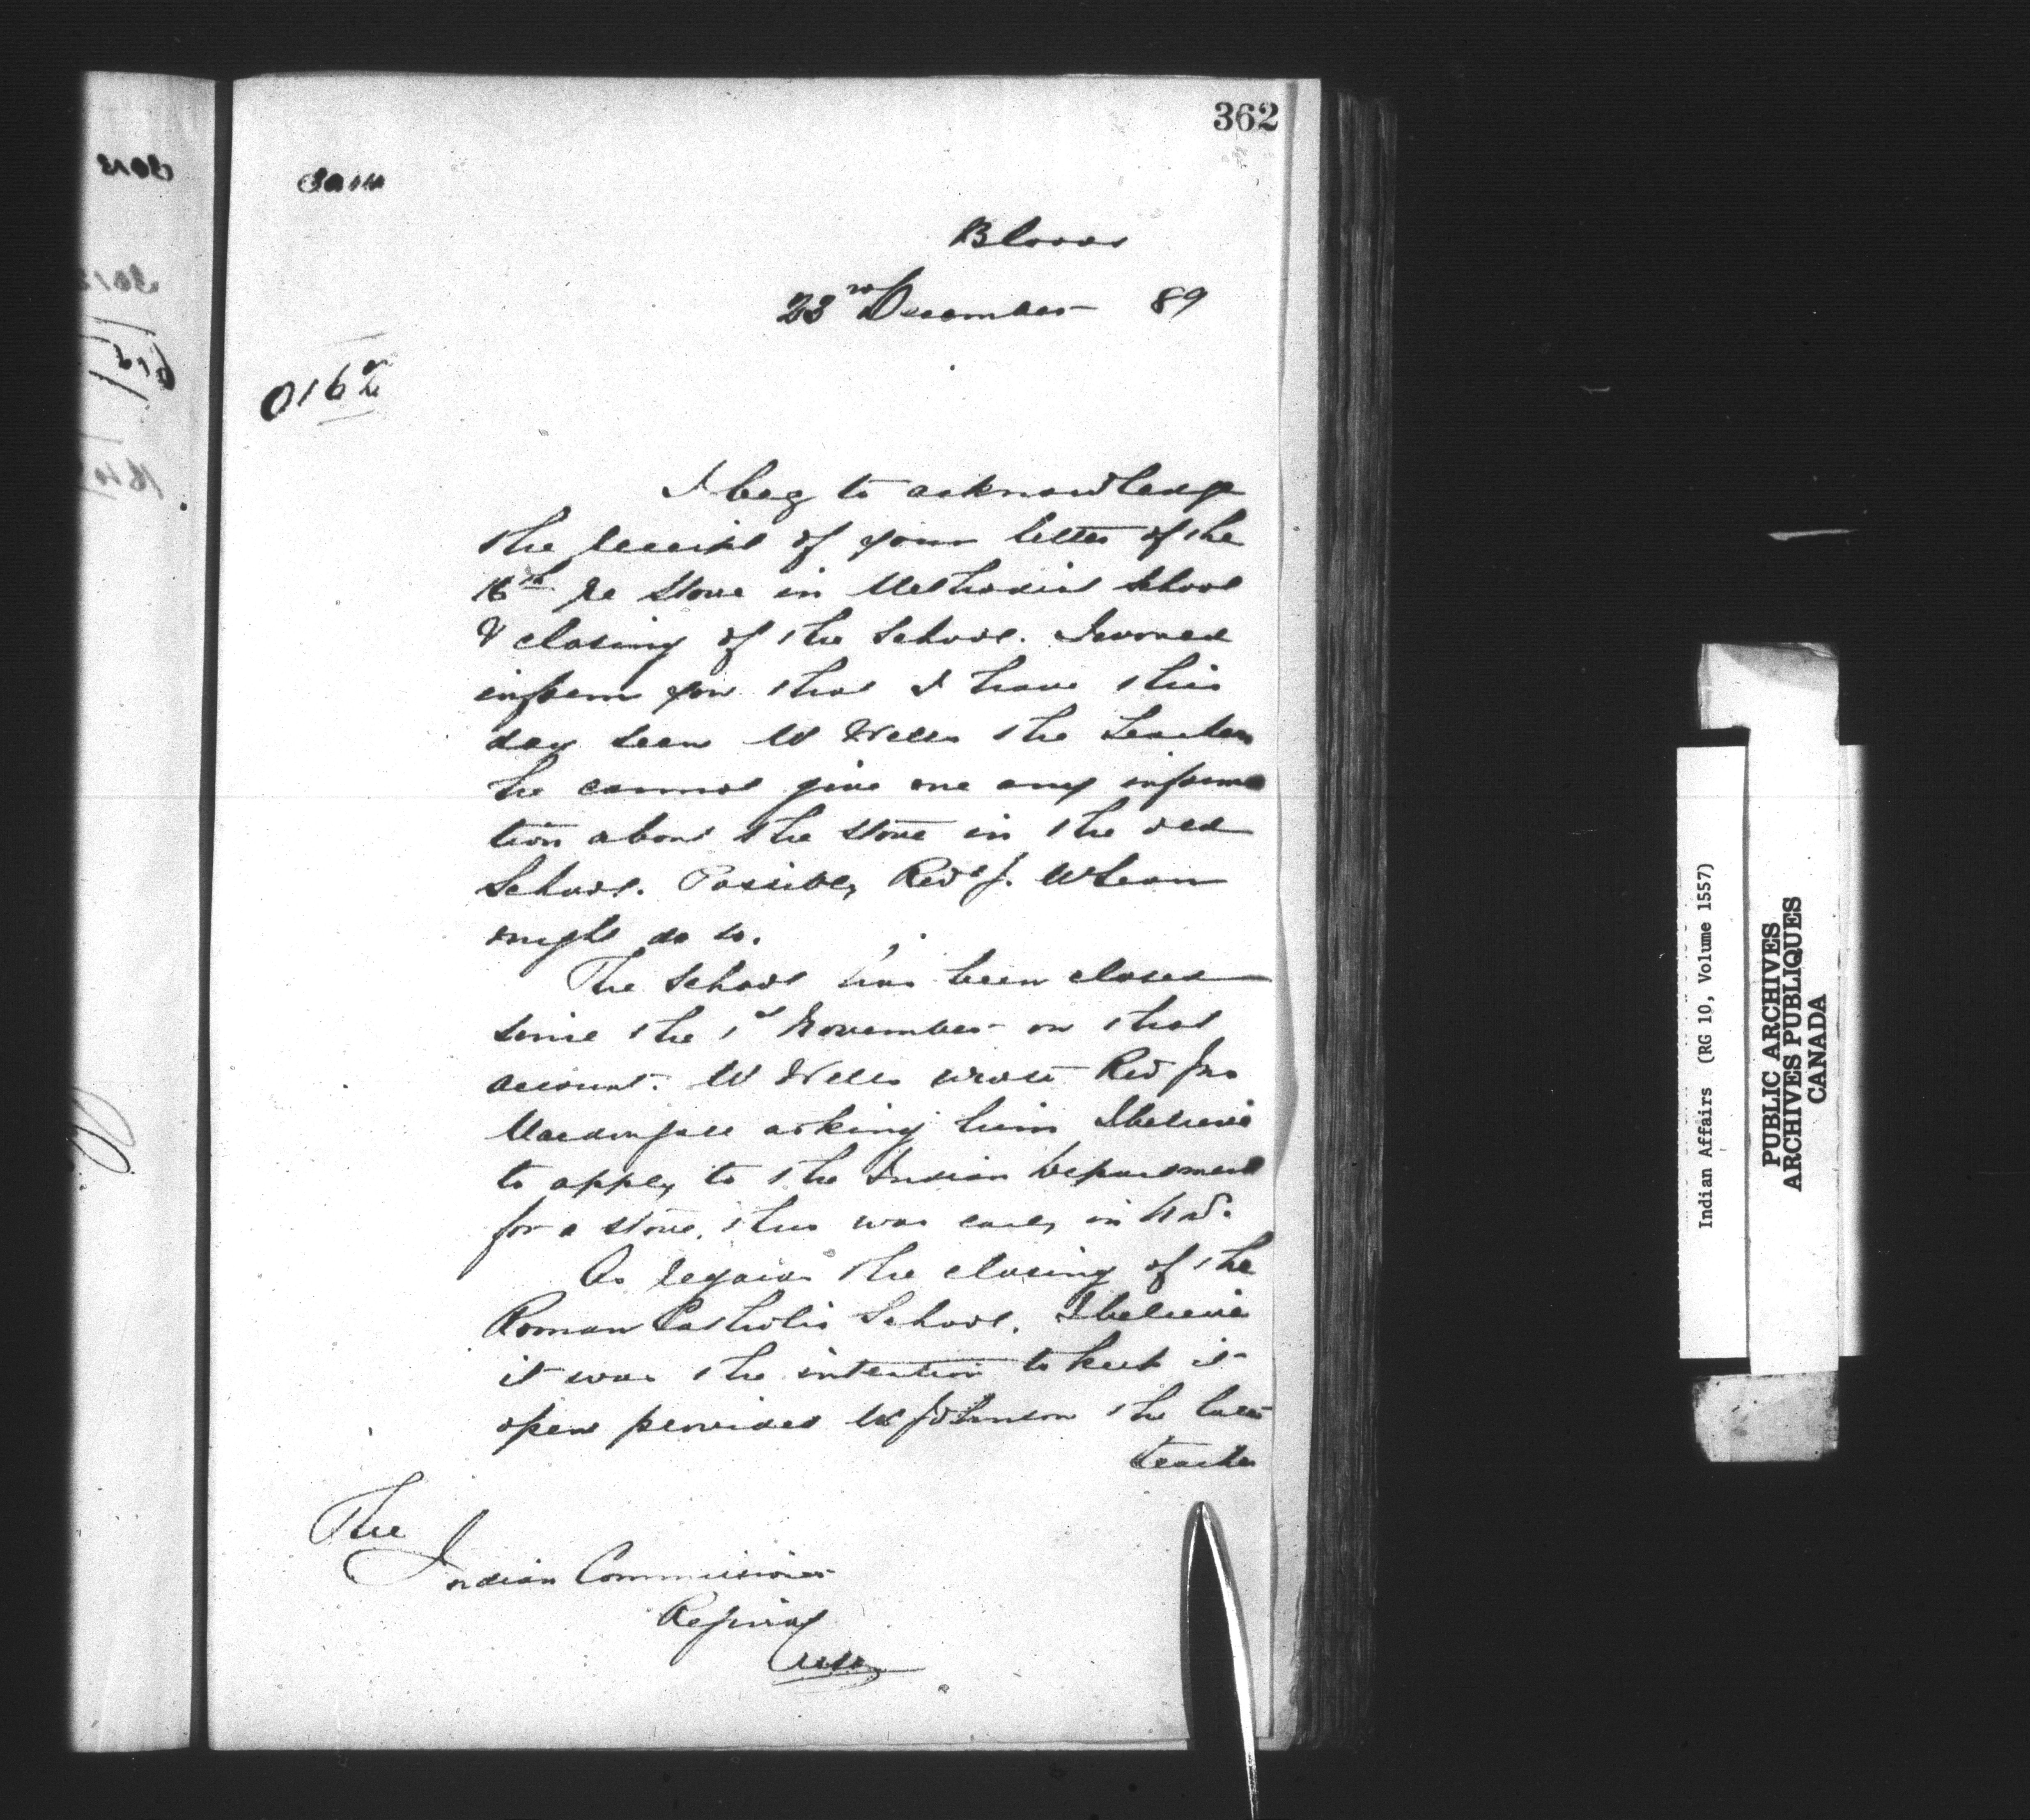 362
Bloods
23rd December 89
I beg to acknowledge
the receipt of your letter of the
16th re stove in Methodist School
& closing of the School. I would
inform you that I have this
day seen Mr Wells the teacher
he cannot give me any informa
tion about the stove in the old
School. Possibly Revd J. McLean
might do so.
The School has been closed
since the 1st November on that
account. Mr Wells wrote Revd Jno
Macdougall asking him I believe
to apply to the Indian Department
for a stove, this was early in Nov.
As regards the closing of the
Roman Catholic School. I believe
it was the intention to keep it
open provided Mr Johnson the late
teacher
The
Indian Commissioner
Regina
Indian Affairs (RG 10, Volume 1557)
PUBLIC ARCHIVES
ARCHIVES PUBLIQUES
CANADA